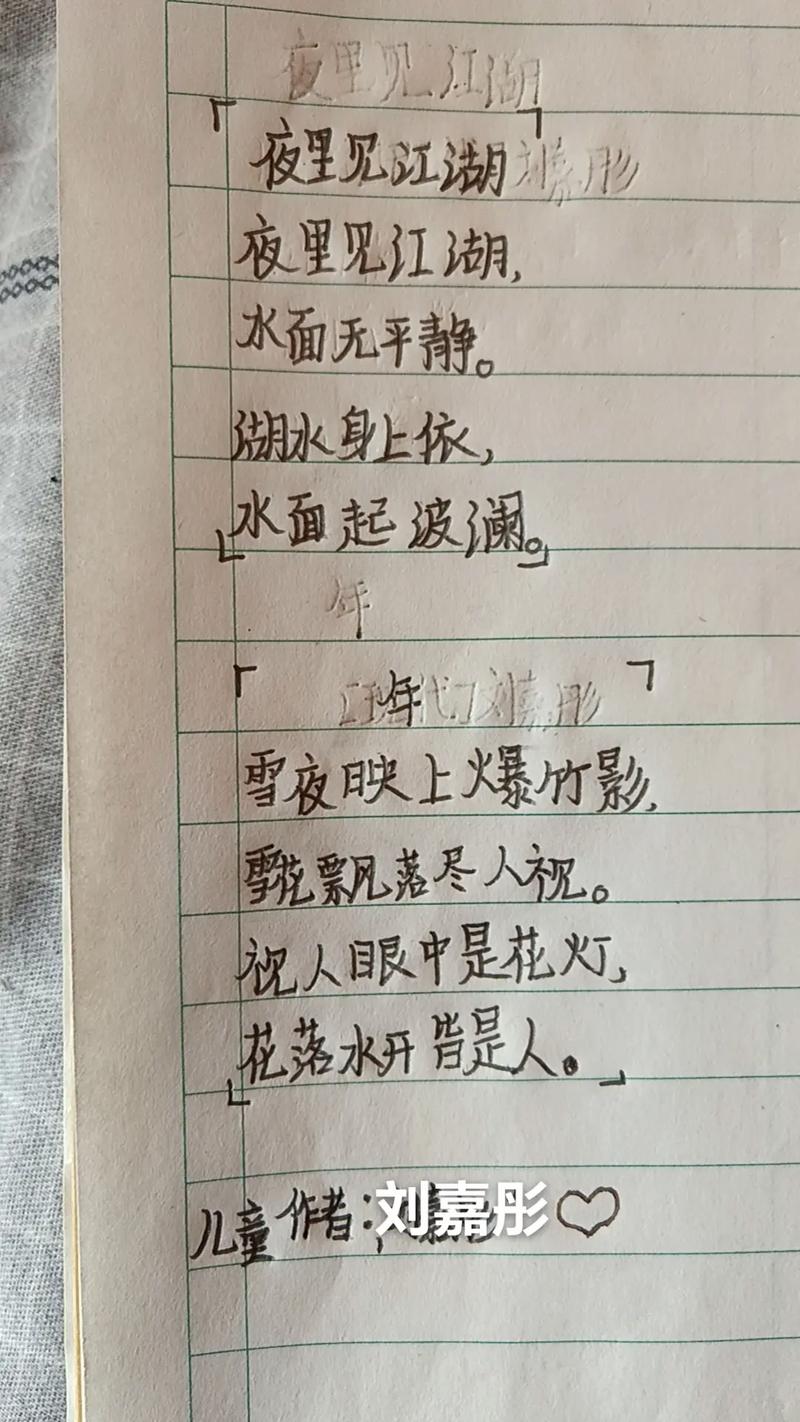 夜里见江湖
夜里见江湖 刘嘉彤
夜里见江湖,
水面无平静。
湖水身上依,
水面起波澜。
年
年 刘嘉彤
雪夜映上爆竹影,
雪花飘落尽人祝。
祝人眼中是花灯,
花落水开皆是人。
儿童作者:刘嘉彤